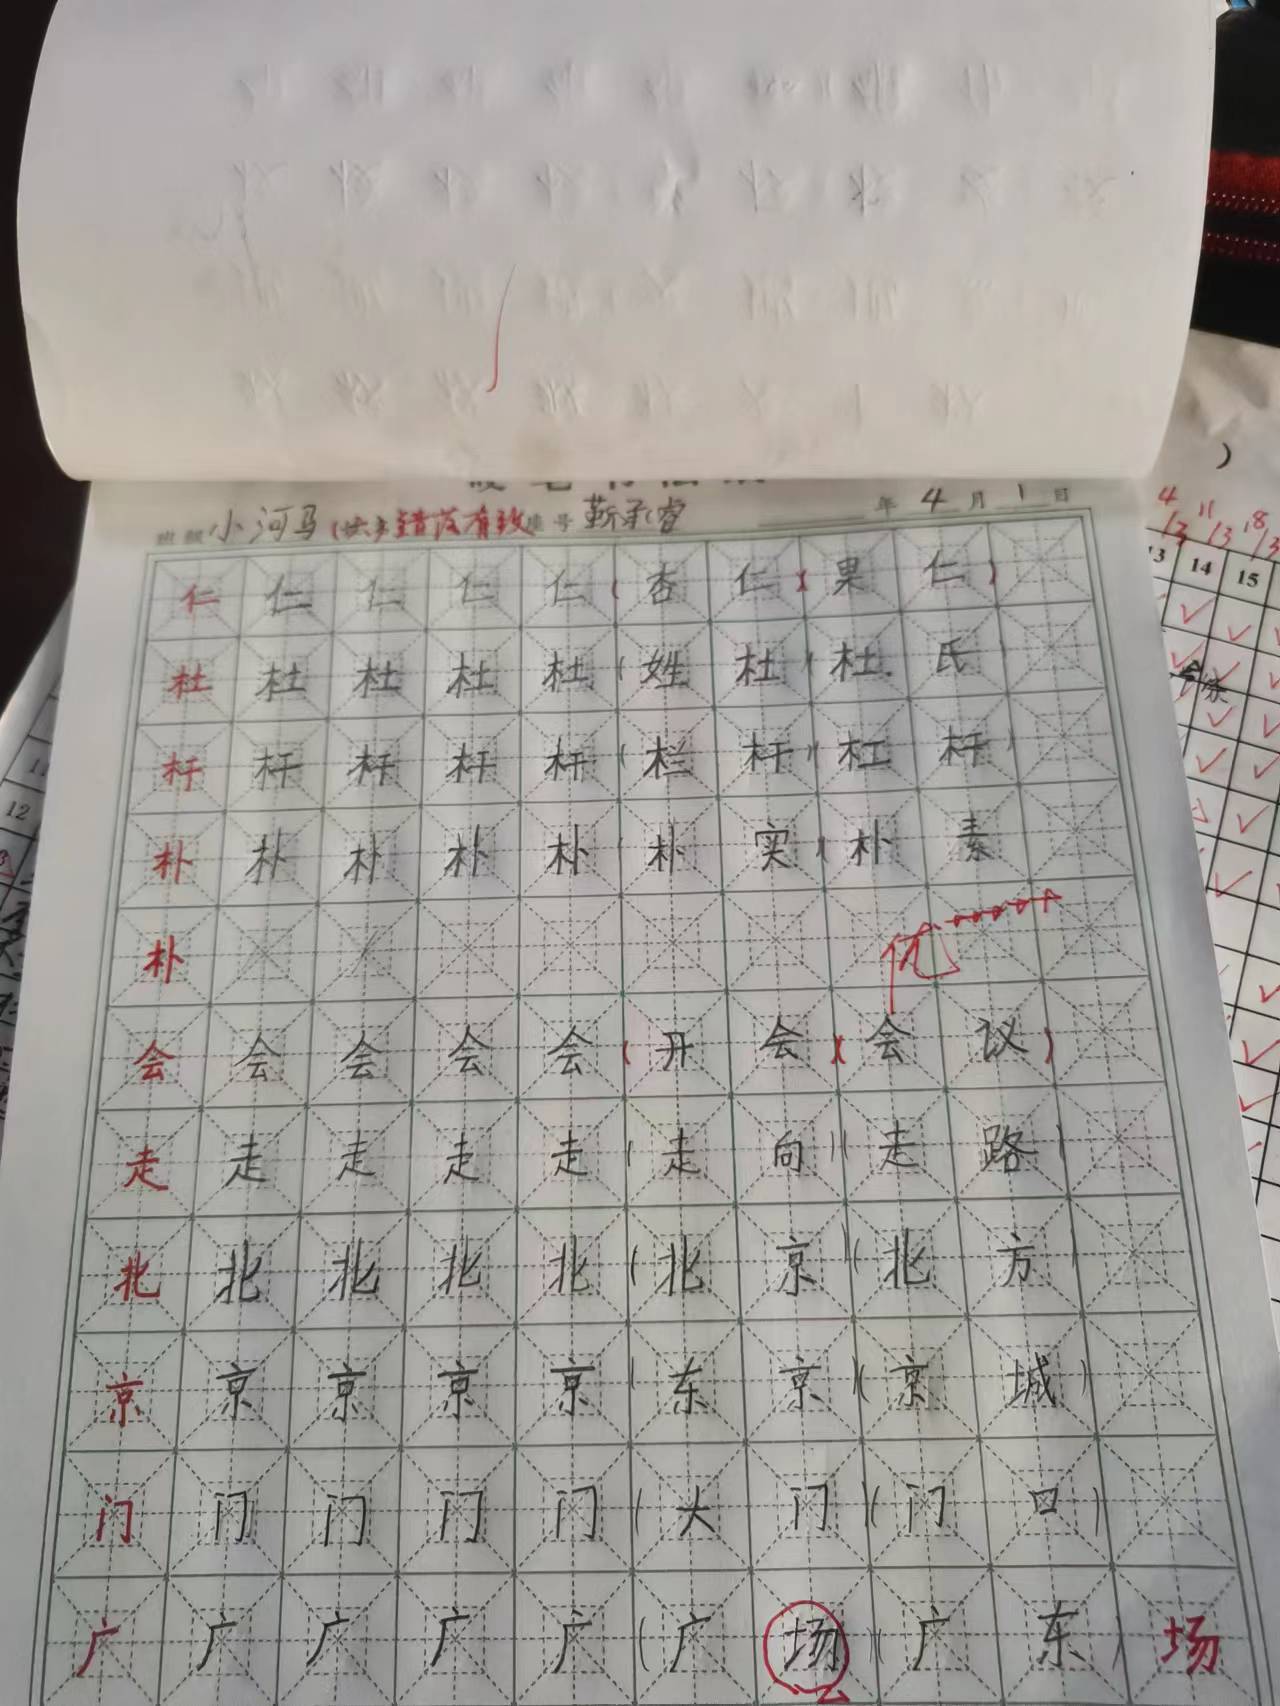 年 4 月 1 日
小河马 错没有改 号 靳承睿
仁 仁 仁 仁 仁 (杏 仁)(果 仁)
杜 杜 杜 杜 杜 (姓 杜)(杜 氏)
杆 杆 杆 杆 杆 (栏 杆)(杠 杆)
朴 朴 朴 朴 朴 (朴 实)(朴 素)
朴
优
会 会 会 会 会 (开 会)(会 议)
走 走 走 走 走 (走 向)(走 路)
北 北 北 北 北 (北 京)(北 方)
京 京 京 京 京 (东 京)(京 城)
门 门 门 门 门 (大 门)(门 口)
广 广 广 广 广 (广 场)(广 东) 场
13 14 15
12